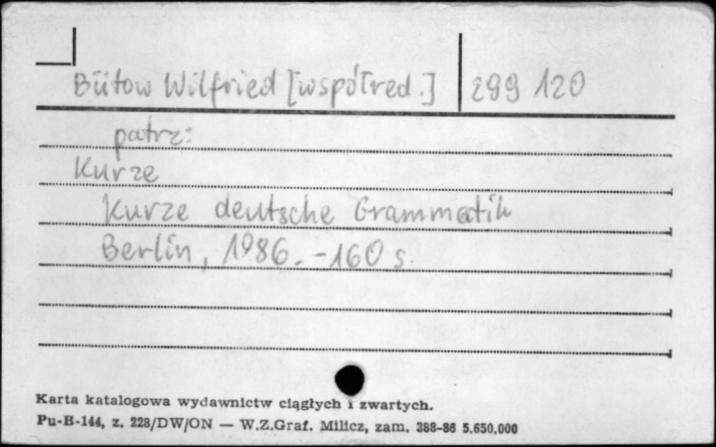 Bütow Wilfried [współred.] 299 120
patrz:
Kurze
Kurze deutsche Grammatik
Berlin, 1986. - 160 s.
Karta katalogowa wydawnictw ciągłych i zwartych.
Pu-B-144, z. 228/DW/ON — W.Z.Graf. Milicz, zam. 388-86 5.650.000